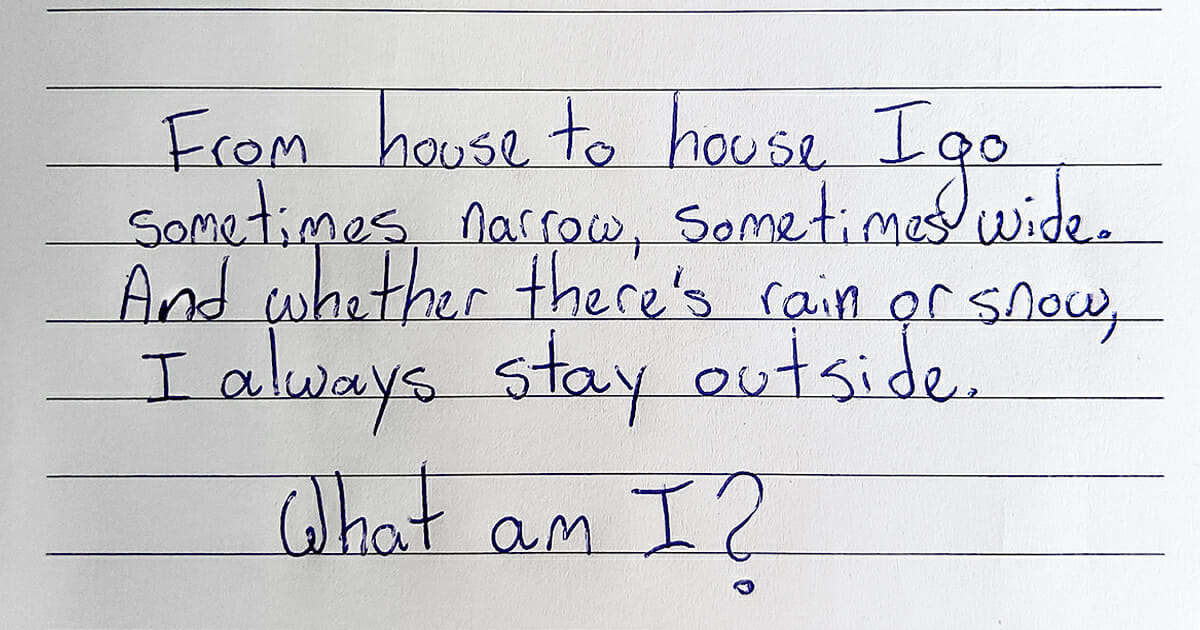 From house to house I go
sometimes narrow, sometimes wide.
And whether there's rain or snow,
I always stay outside.
What am I?